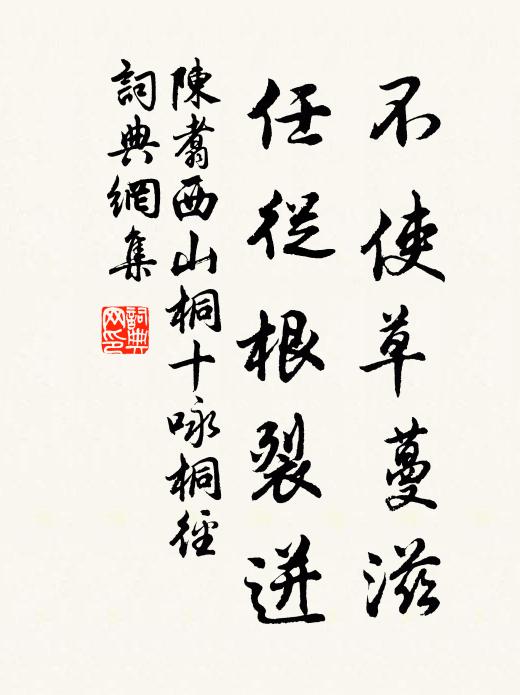 不使草蔓滋
任從根裂迸
陳翥西山桐十咏桐徑
詞典網集
詞典网印